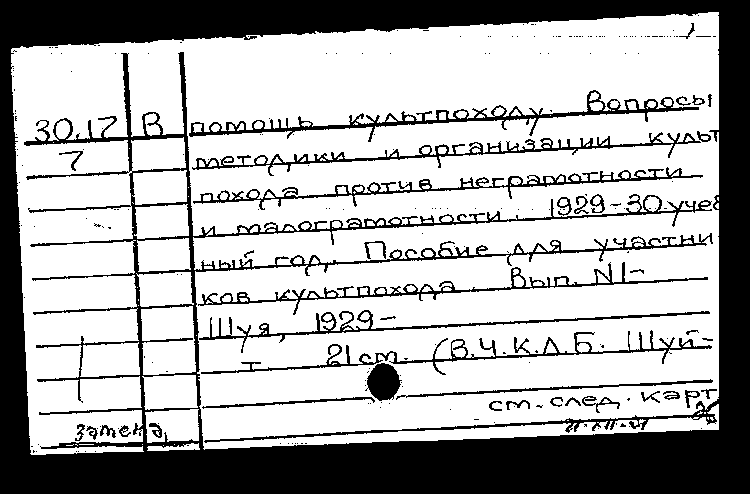 30.17 В помощь культпоходу. Вопросы
7 методики и организации культ
похода против неграмотности
и малограмотности. 1929-30 учеб
ный год. Пособие для участни
ков культпохода. Вып. N1-
Шуя, 1929-
т 21 см. (В.Ч.К.Л.Б. Шуй-
см. след. карт
замена